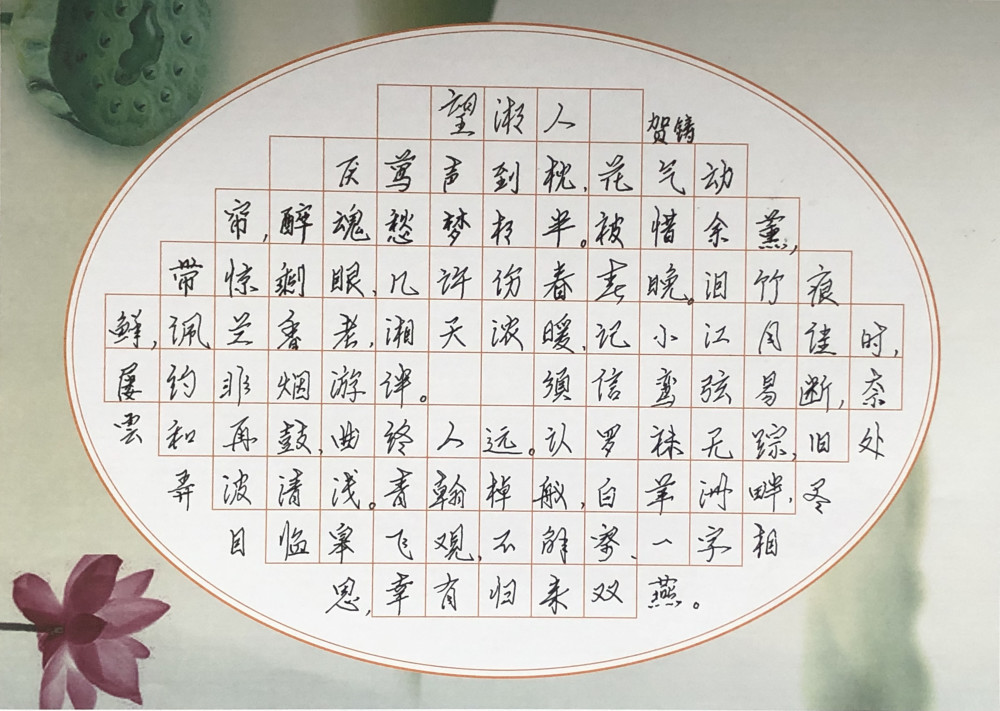 望湘人
贺铸
厌莺声到枕,花气动
帘,醉魂愁梦相半。被惜余薰,
带惊剩眼,几许伤春春晚。泪竹痕
鲜,佩兰香老,湘天浓暖,记小江风月佳时,
屡约非烟游伴。 须信鸾弦易断,奈
雲和再鼓,曲终人远。认罗袜无踪,旧处
弄波清浅。青翰棹舣,白苹洲畔,尽
目临皋飞观,不解寄、一字相
思,幸有归来双燕。